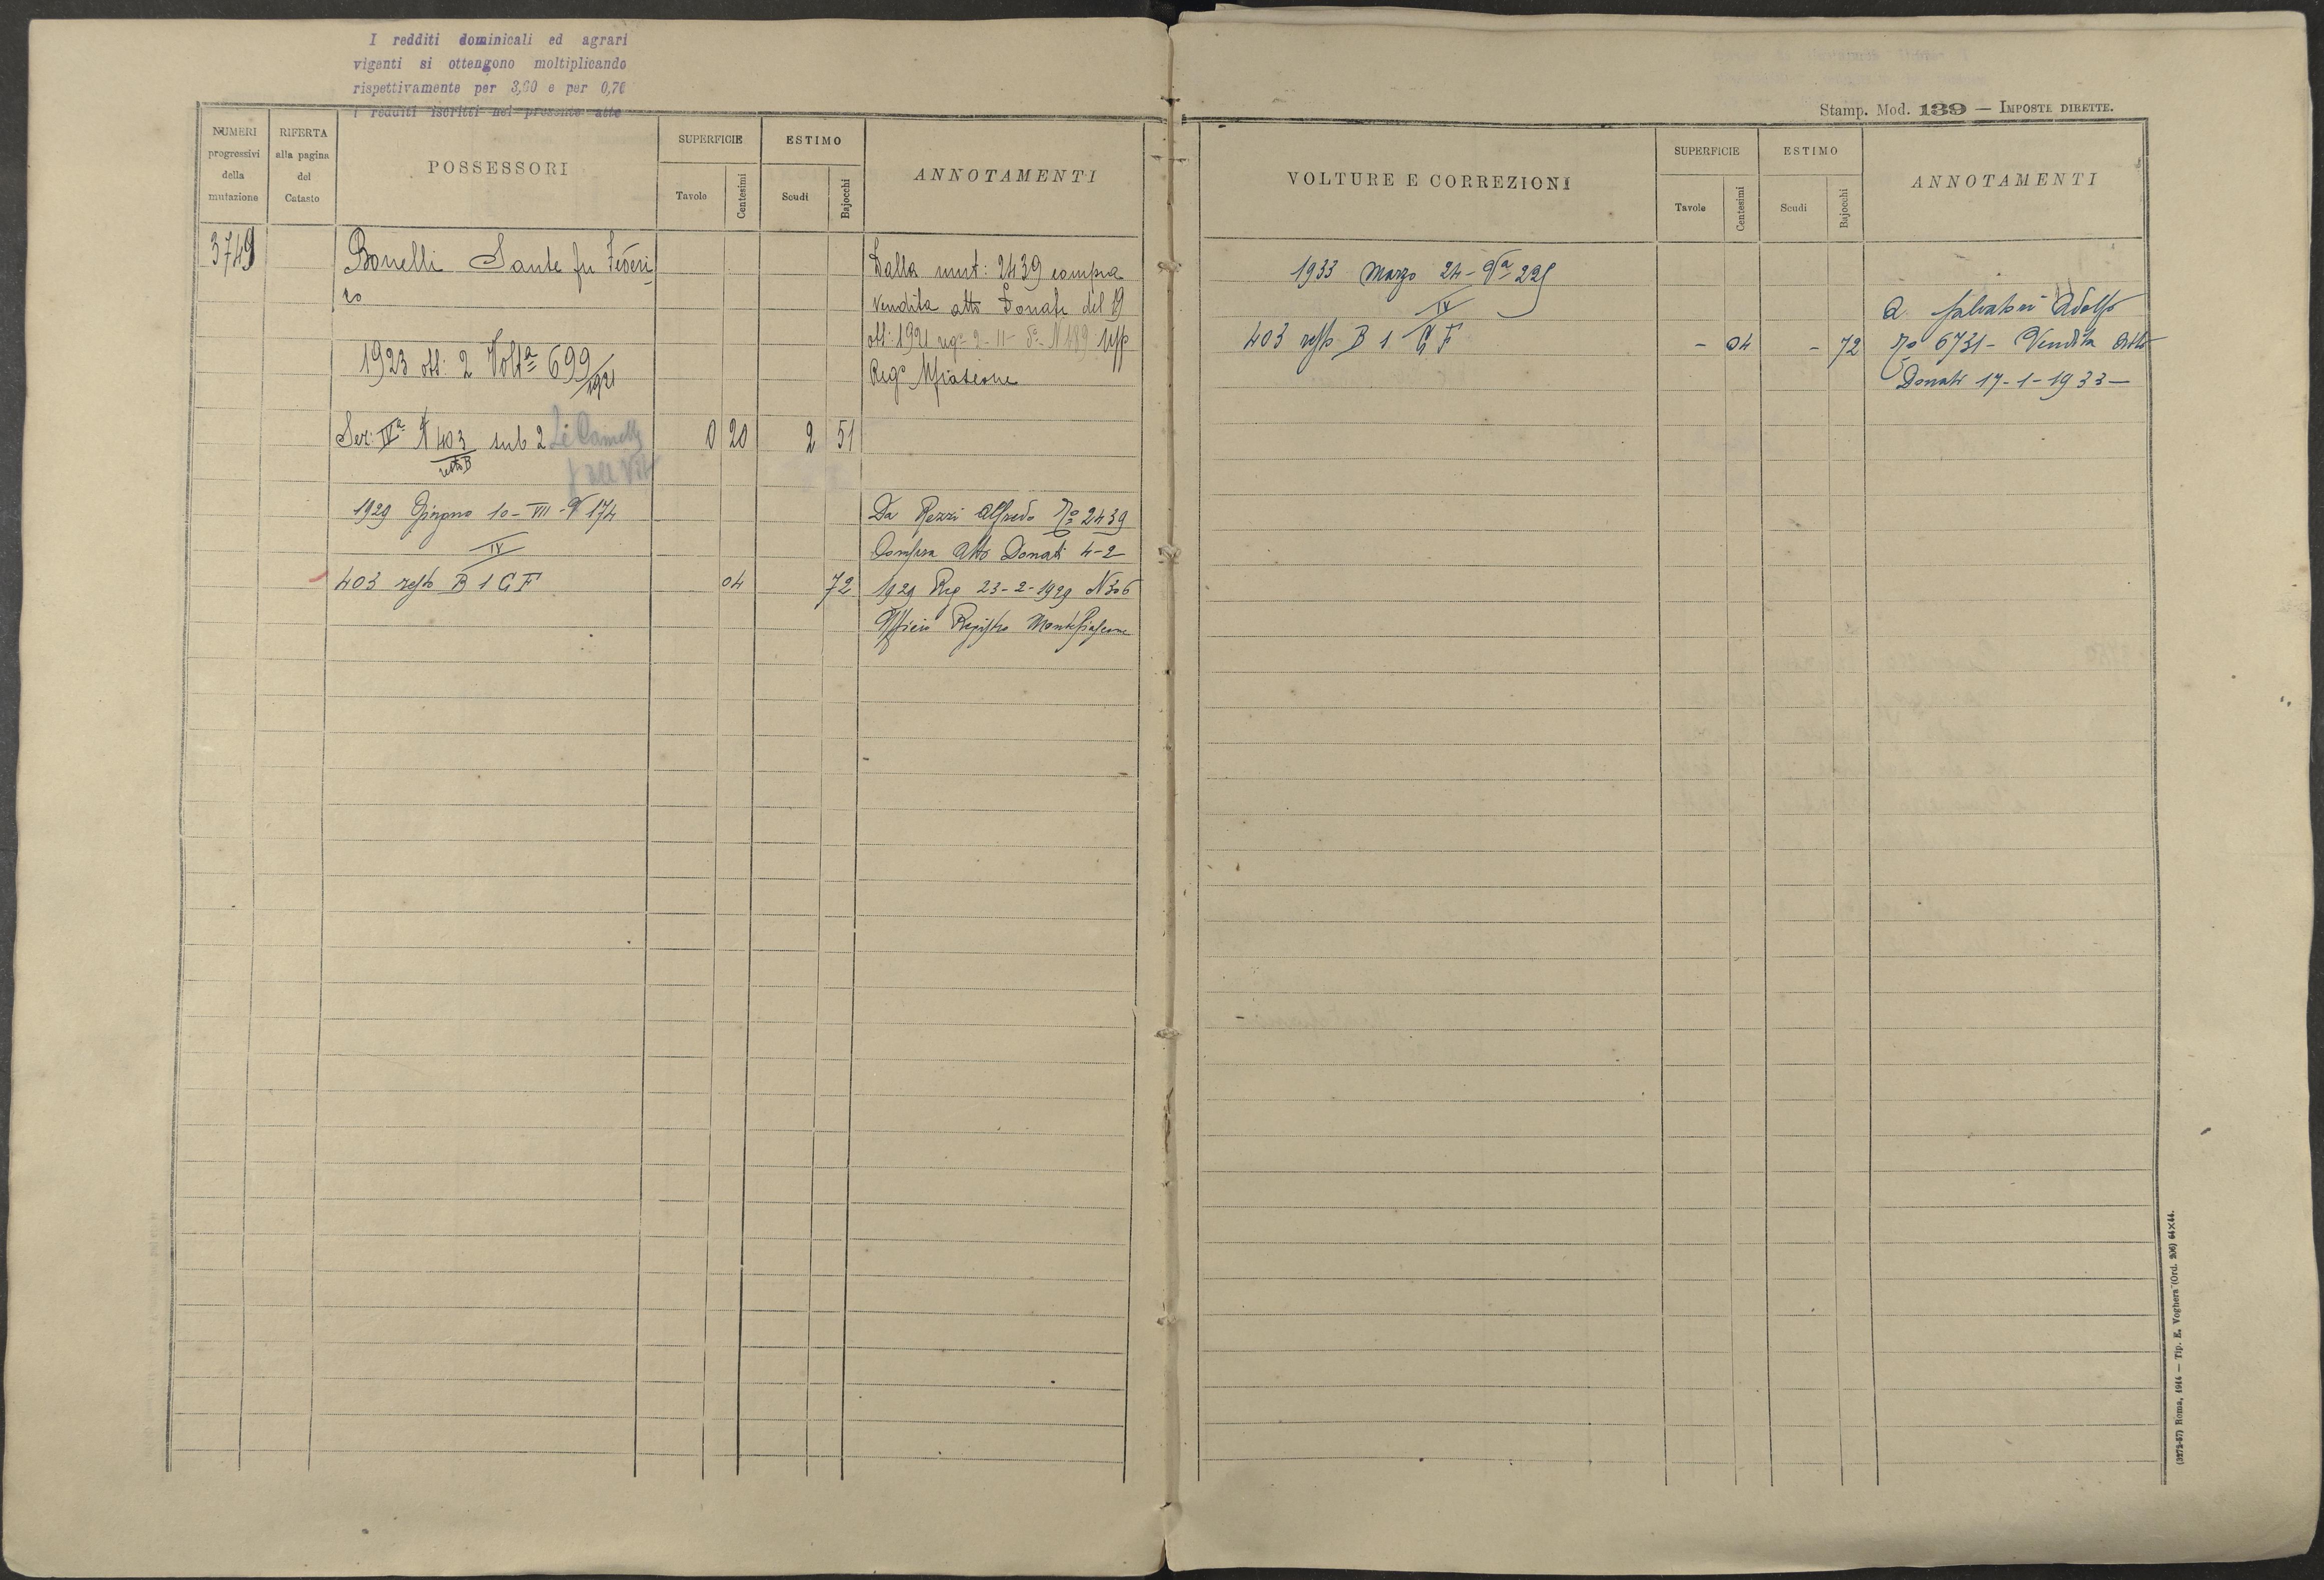 I redditi dominicali ed agrari
vigenti si ottengono moltiplicando
rispettivamente per 3,60 e per 0,70
i redditi iscritti nel presente atto
NUMERI
progressivi
della
mutazione
RIFERTA
alla pagina
del
Catasto
POSSESSORI
SUPERFICIE
Tavole
Centesimi
ESTIMO
Scudi
Bajocchi
ANNOTAMENTI
3749
Bonelli Sante fu Federi
co
1923 ott: 2 Volta 699/1921
Sez: IVa N 403 sub 2
resto B
0 20 2 51
Dalla mut: 2439 compra
vendita atto Donati del 19
ott: 1921 reg 2-11- N 189 Uff
Rego Mfiascone
1929 Giugno 10-VII-V 174
IV
403 resto B 1 G F 04 72
Da Rezzi Alfredo No 2439
Compra Atto Donati 4-2
1929 Reg 23-2-1929 N 306
Ufficio Registro Montefiascone
Stamp. Mod. 139 — IMPOSTE DIRETTE.
VOLTURE E CORREZIONI
SUPERFICIE
Tavole
Centesimi
ESTIMO
Scudi
Bajocchi
ANNOTAMENTI
1933 Marzo 24-Va 229
IV
403 resto B 1 G F - 04 - 72
a Salvatori Adolfo
No 6731- Vendita Atto
Donati 17-1-1933-
(3272-57) Roma, 1914 — Tip. E. Voghera (Ord. 206) 64×44.